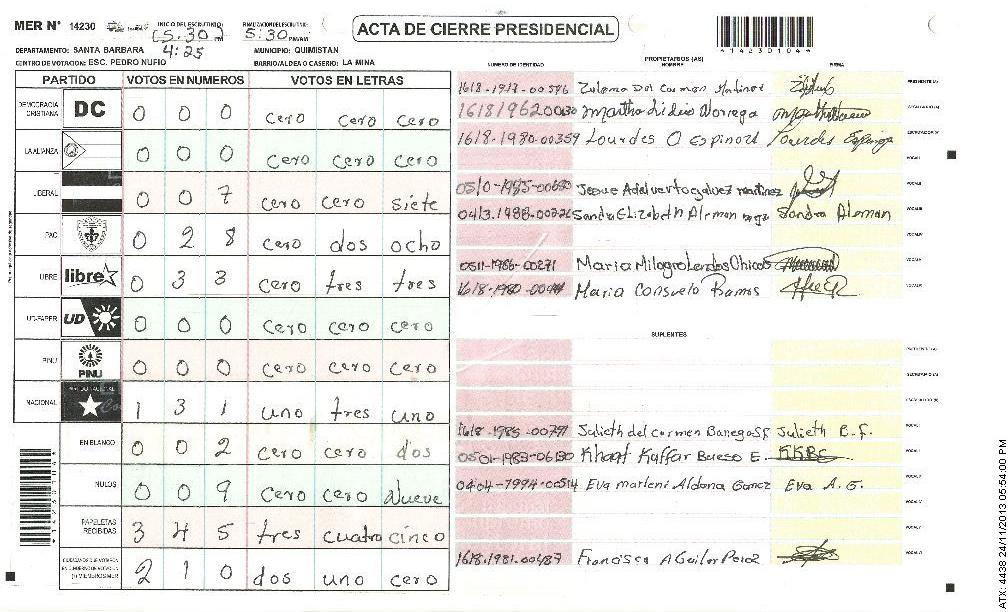 MER N° 14230 INICIO DEL ESCRUTINIO: FINALIZACION DEL ESCRUTINIO:
(5:30) 5:30 PM/AM
4:25
ACTA DE CIERRE PRESIDENCIAL
*142301041*
DEPARTAMENTO: SANTA BARBARA MUNICIPIO: QUIMISTAN
CENTRO DE VOTACION: ESC. PEDRO NUFIO BARRIO/ALDEA O CASERIO: LA MINA
PARTIDO VOTOS EN NUMEROS VOTOS EN LETRAS
DEMOCRACIA CRISTIANA DC 0 0 0 cero cero cero
LA ALIANZA 0 0 0 cero cero cero
LIBERAL 0 0 7 cero cero siete
PAC 0 2 8 cero dos ocho
LIBRE libre 0 3 3 cero tres tres
UD-FAPER UD 0 0 0 cero cero cero
PINU PINU 0 0 0 cero cero cero
NACIONAL PARTIDO NACIONAL 1 3 1 uno tres uno
EN BLANCO 0 0 2 cero cero dos
NULOS 0 0 9 cero cero Nueve
PAPELETAS RECIBIDAS 3 4 5 tres cuatro cinco
CIUDADANOS QUE VOTARON EN CUADERNO DE VOTACION (+) MIEMBROS MER 2 1 0 dos uno cero
*142301041*
PROPIETARIOS (AS)
NUMERO DE IDENTIDAD NOMBRE FIRMA
Zulema Del Carmen Martinez PRESIDENTE (A)
1618196200130 Martha Lidia Noriega SECRETARIO (A)
1618-1980-00359 Lourdes O Espinoza Lourdes Espinoza ESCRUTADOR (A)
VOCAL I
0510-1985-00680 Jesue Adalverto galvez martinez VOCAL II
Sandra Elizabeth Aleman Sandra Aleman VOCAL III
VOCAL IV
0511-1986-00271 Maria Milagro VOCAL V
Maria Consuelo Ramos VOCAL VI
SUPLENTES
PRESIDENTE (A)
SECRETARIO (A)
ESCRUTADOR (A)
1618-1985-00791 Julieth del carmen Banegas f. Julieth B.f. VOCAL I
0501-1983-06130 Khaaf Kaffar Bueso E. KKBE VOCAL II
Eva marleni Aldana Gomez Eva A. G. VOCAL IV
VOCAL V
1618.1981-00487 Francisca Aguilar Perez VOCAL VI
ATX: 4438 24/11/2013 05:54:00 PM